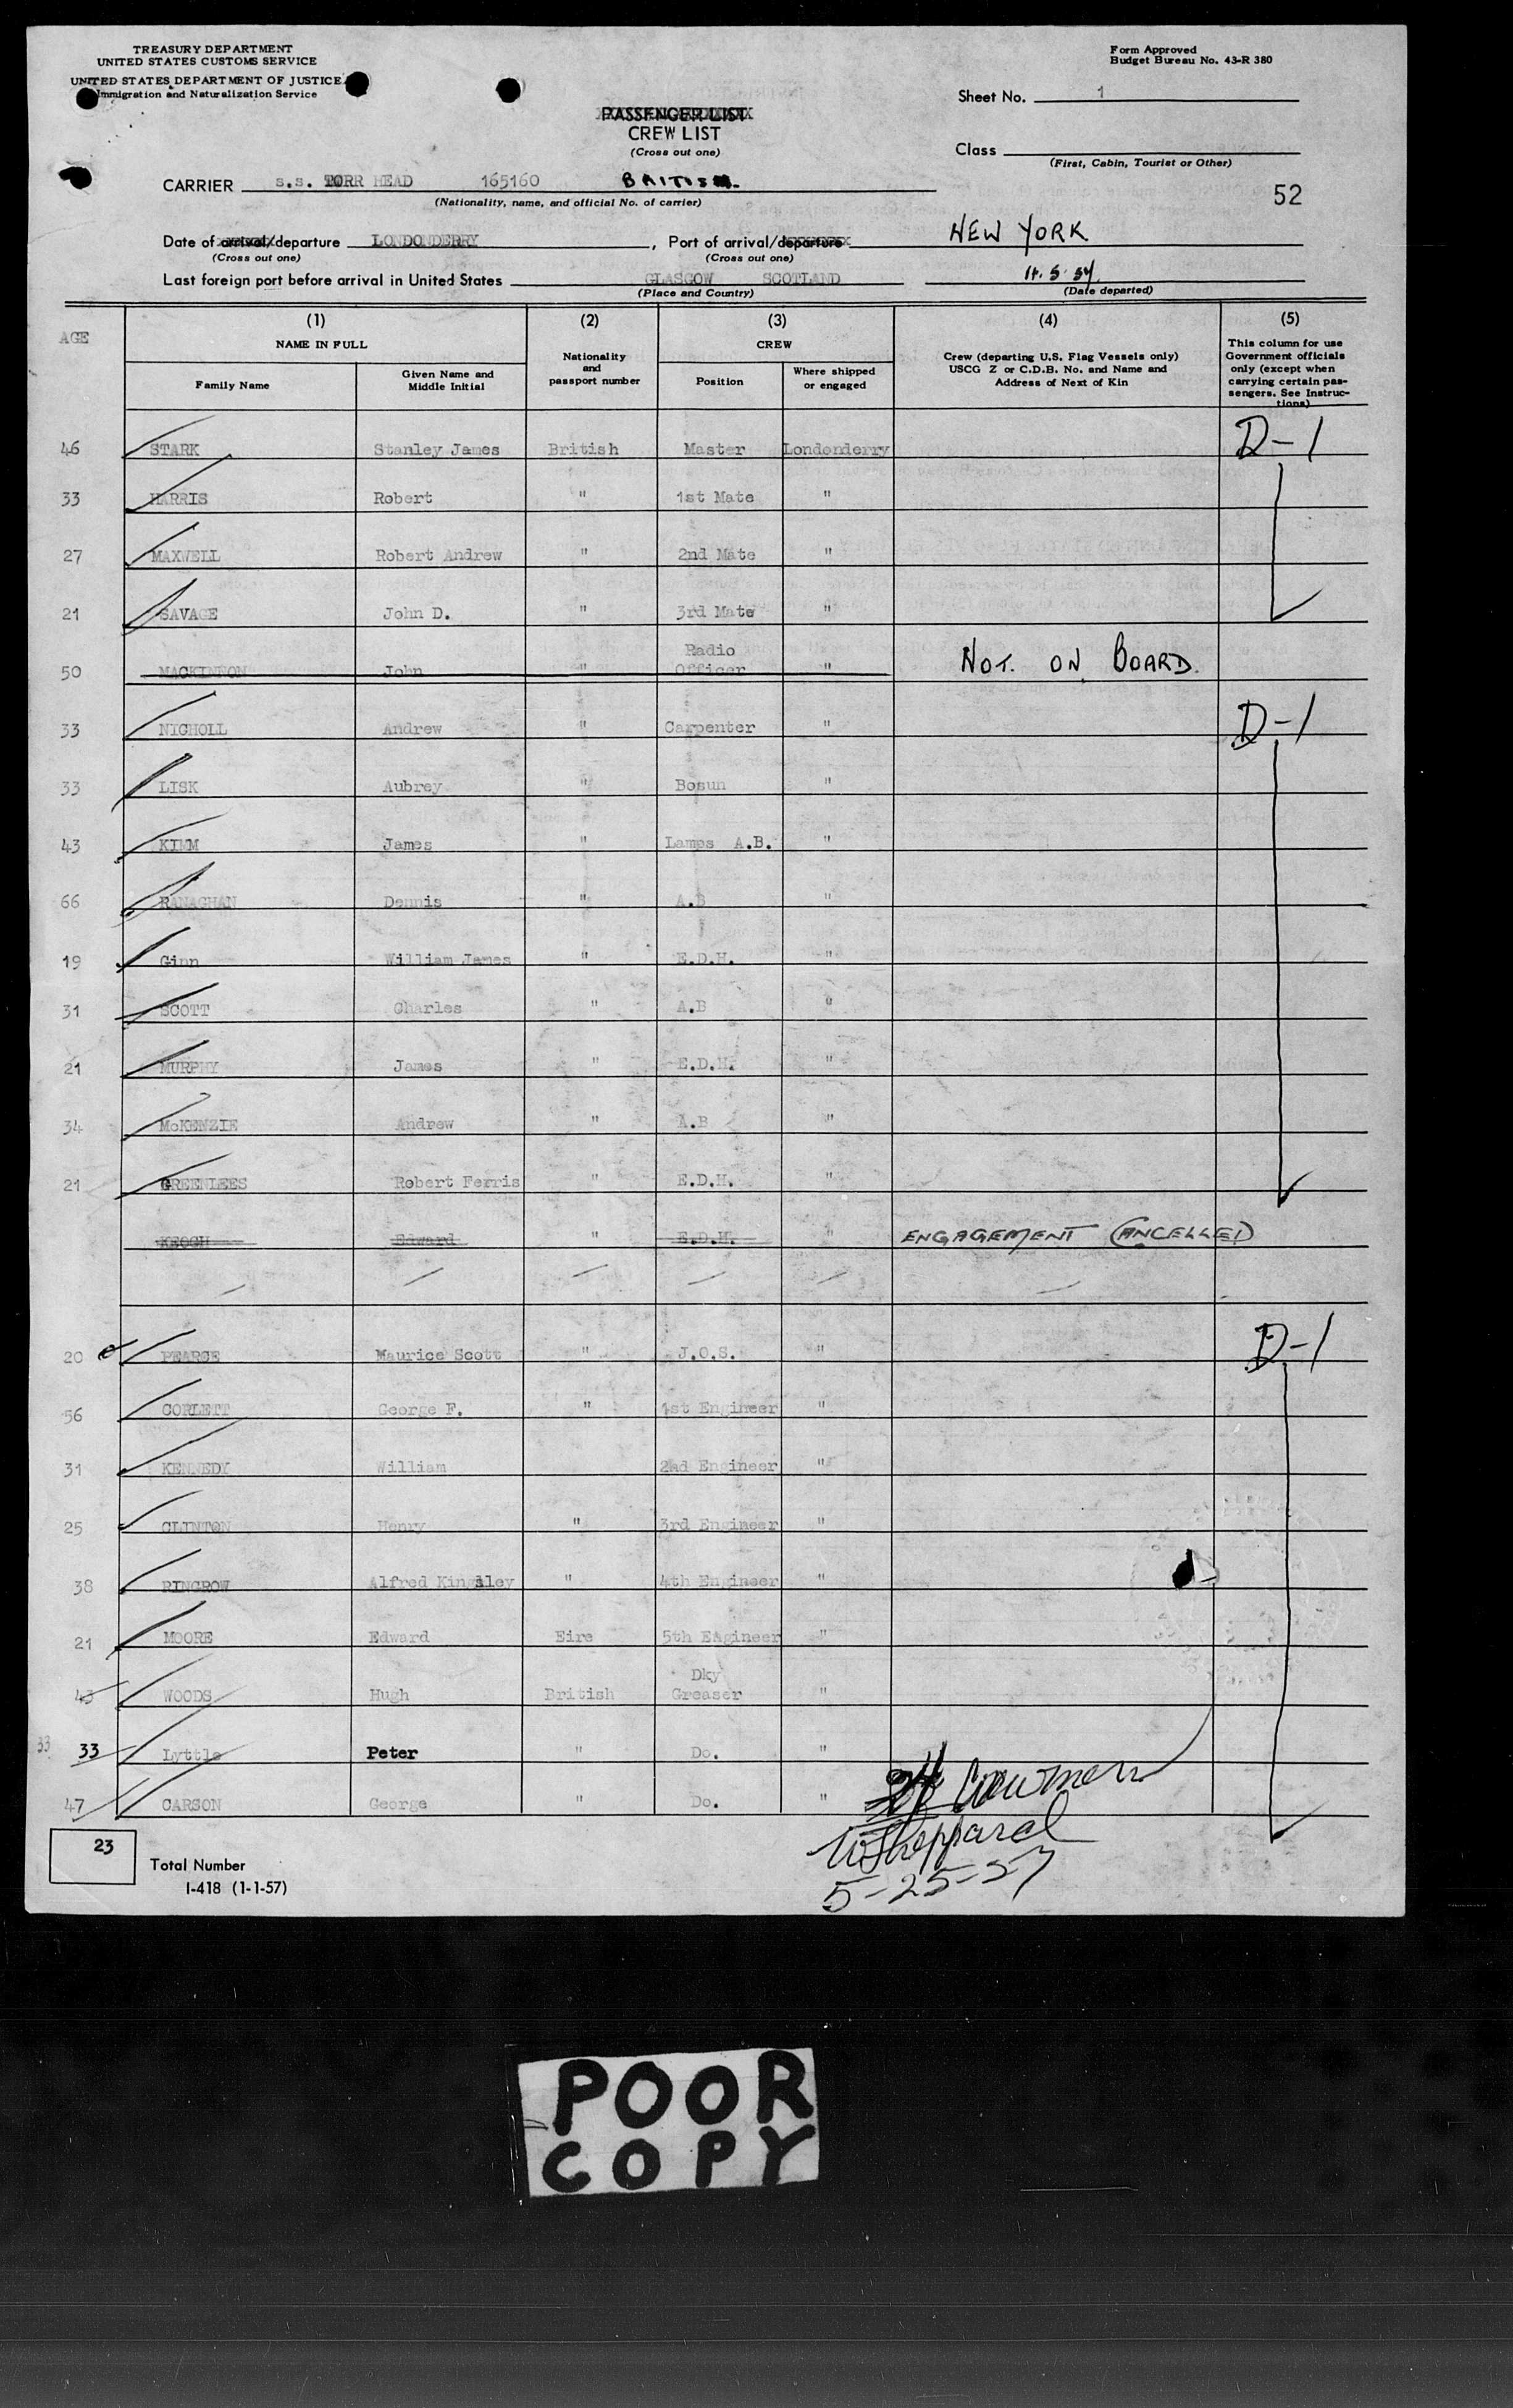 TREASURY DEPARTMENT
UNITED STATES CUSTOMS SERVICE
UNITED STATES DEPARTMENT OF JUSTICE
Immigration and Naturalization Service
Form Approved
Budget Bureau No. 43-R 380
Sheet No. 1
PASSENGER LIST
CREW LIST
(Cross out one)
Class
(First, Cabin, Tourist or Other)
CARRIER s.s. TORR HEAD 165160 BRITISH
(Nationality, name, and official No. of carrier)
52
Date of arrival/departure LONDONDERRY, Port of arrival/departure NEW YORK
(Cross out one) (Cross out one)
Last foreign port before arrival in United States GLASGOW SCOTLAND
(Place and Country) (Date departed)
AGE
(1) (2) (3) (4) (5)
NAME IN FULL
Family Name
Given Name and Middle Initial
Nationality and passport number
CREW
Position
Where shipped or engaged
Crew (departing U.S. Flag Vessels only)
USCG Z or C.D.B. No. and Name and
Address of Next of Kin
This column for use
Government officials
only (except when
carrying certain pas-
sengers. See Instruc-
tions)
46 STARK Stanley James British Master Londonderry D-1
33 HARRIS Robert " 1st Mate "
27 MAXWELL Robert Andrew " 2nd Mate "
21 SAVAGE John D. " 3rd Mate "
50 MACKINNON John " Radio Officer " NOT ON BOARD.
33 NICHOLL Andrew " Carpenter " D-1
33 LISK Aubrey " Bosun "
43 KIMM James " Lamps A.B. "
66 RANAGHAN Dennis " A.B "
19 Ginn William James " E.D.H. "
31 SCOTT Charles " A.B "
21 MURPHY James " E.D.H. "
34 McKENZIE Andrew " A.B "
21 GREENLEES Robert Ferris " E.D.H. "
KEOGH Edward " E.D.H. " ENGAGEMENT CANCELLED
20 PEARCE Maurice Scott " J.O.S. " D-1
56 CORLETT George F. " 1st Engineer "
31 KENNEDY William 2nd Engineer "
25 CLINTON Henry " 3rd Engineer "
38 RINGROW Alfred Kingsley " 4th Engineer "
21 MOORE Edward Eire 5th Engineer "
43 WOODS Hugh British Dky Greaser "
33 33 Lyttle Peter " Do. "
47 CARSON George " Do. "
23
Total Number
I-418 (1-1-57)
W Sheppard
5-25-57
POOR
COPY